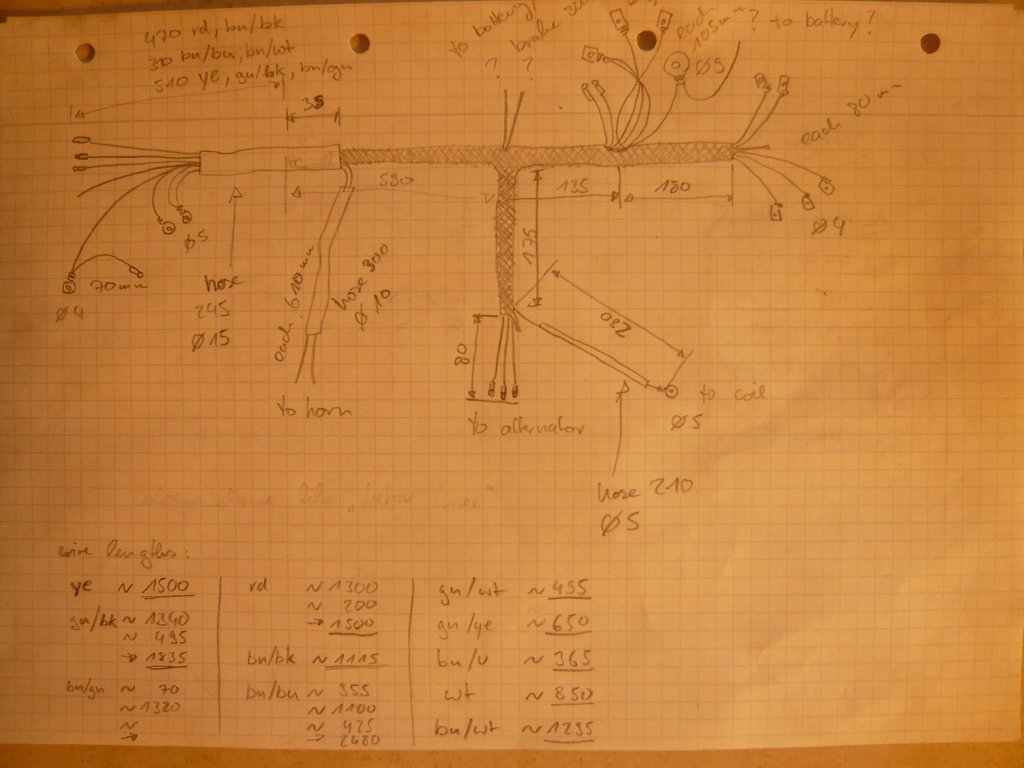 470 rd, bn/bk
310 bn/bu, bn/wt
510 ye, gn/bk, bn/gn
to battery,
brake
? ?
each
105 mm
Ø5
? to battery?
35
each 80 mm
580
135
180
175
Ø5
Ø4
70mm
Ø4
hose
245
Ø15
each 610 mm
hose 300
Ø 10
to horn
80
to alternator
280
to coil
Ø5
hose 210
Ø5
wire lengths:
ye ~ 1500
gn/bk ~ 1340
~ 495
→ 1835
bn/gn ~ 70
~ 1320
~
→
rd ~ 1300
~ 200
→ 1500
bn/bk ~ 1115
bn/bu ~ 955
~ 1100
~ 425
→ 2480
gn/wt ~ 455
gn/ye ~ 650
bn/v ~ 365
wt ~ 850
bn/wt ~ 1295